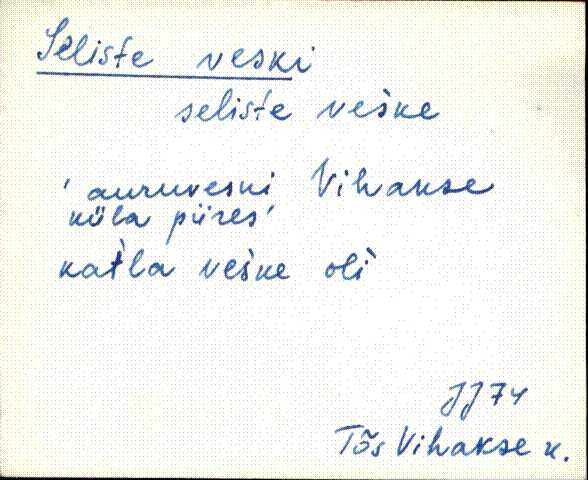 Seliste veski
seliste veške
'auruveski Vihakse
küla piires'
kat̀la veške oli̇̀
JJ 74
Tõs Vihakse k.